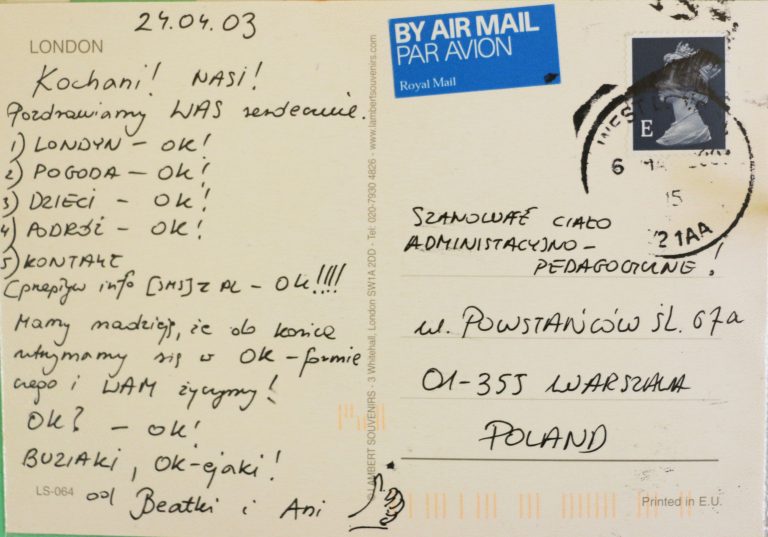 24.04.03
LONDON
Kochani! NASI!
Pozdrawiamy WAS serdecznie.
1) LONDYN - OK!
2) POGODA - OK!
3) DZIECI - OK!
4) PODRÓŻ - OK!
5) KONTAKT
(przepływ info [SMS] z PL - OK!!!!
Mamy nadzieję, że do końca
utrzymamy się w OK-formie
czego i WAM życzymy!
OK? - OK!
BUZIAKI, OK-ejaki!
LS-064
od Beatki i Ani
© LAMBERT SOUVENIRS - 3 Whitehall, London SW1A 2DD - Tel: 020-7930 4826 - www.lambertsouvenirs.com
BY AIR MAIL
PAR AVION
Royal Mail
E
6
15
21AA
SZANOWNE CIAŁO
ADMINISTACYJNO-
PEDAGOGICZNE!
ul. POWSTAŃCÓW ŚL. 67a
01-355 WARSZAWA
POLAND
Printed in E.U.